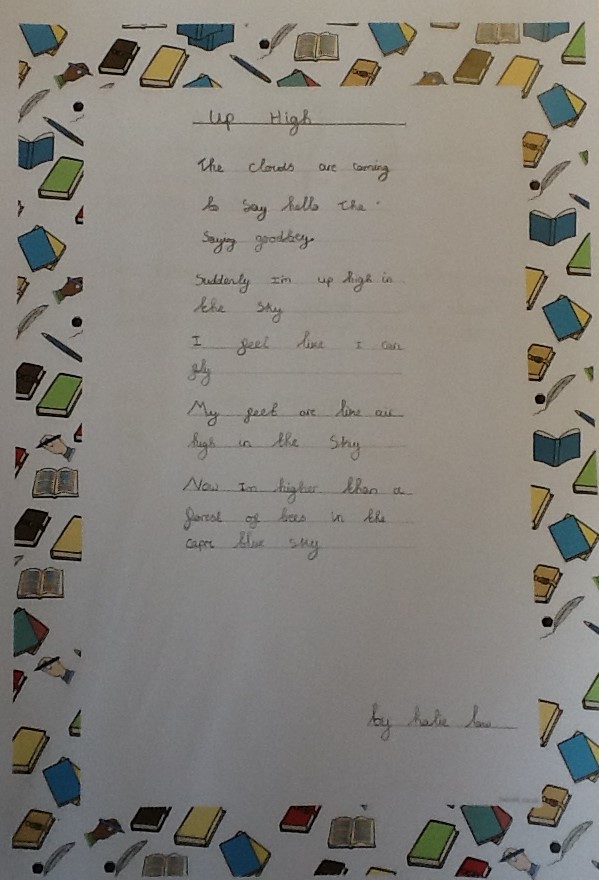 Up High
The clouds are coming
to say hello the
saying goodbey.
Suddenly Im up high in
the sky
I feel like I can
fly
My feet are like air
high in the sky
Now Im higher than a
forest of trees in the
capri blue sky
by katie